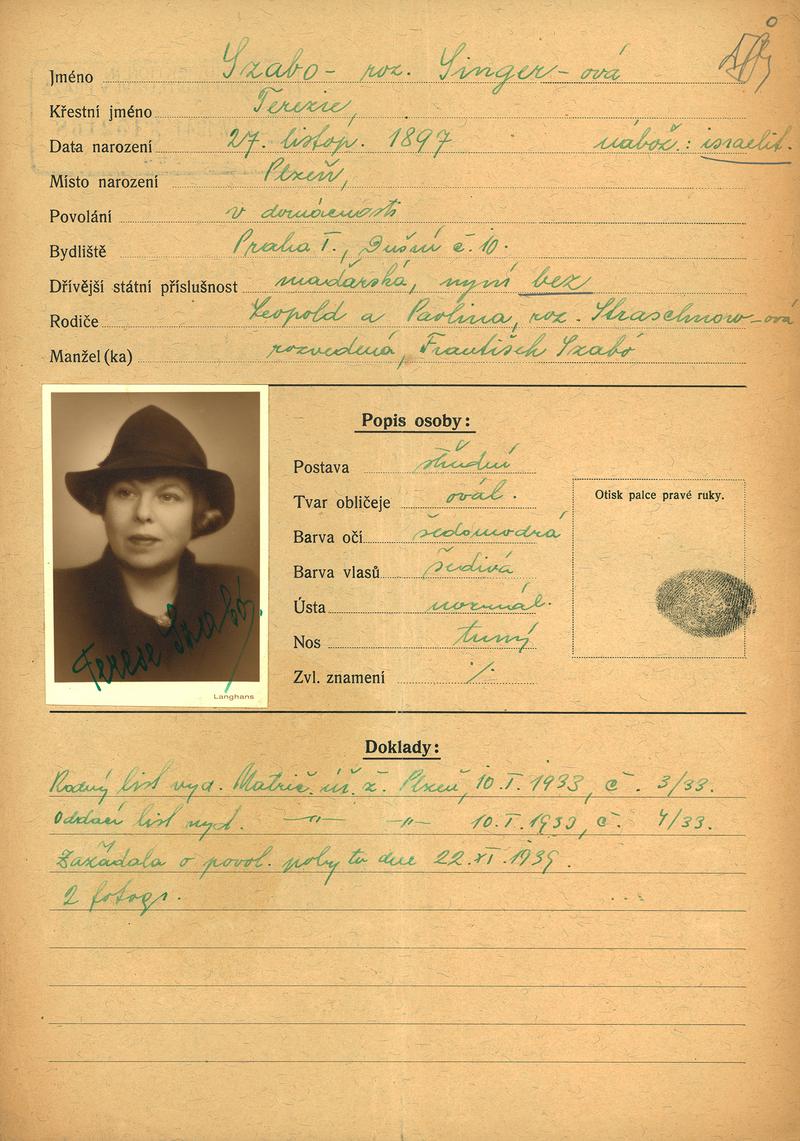 Jméno Szabo- roz. Singer-ová
Křestní jméno Terezie,
Data narození 27. listop. 1897 nábož.: israelit.
Místo narození Plzeň,
Povolání v domácnosti
Bydliště Praha I., Dušní č. 10.
Dřívější státní příslušnost maďarská, nyní bez
Rodiče Leopold a Paolina, roz. Straschnow-ová
Manžel (ka) rozvedená, František Szabó
Popis osoby:
Postava střední
Tvar obličeje ovál.
Barva očí šedomodrá
Barva vlasů šedivá
Ústa normál.
Nos tupý
Zvl. znamení ./.
Otisk palce pravé ruky.
Terese Szabó.
Langhans
Doklady:
Rodný list vyd. Matrič. úř. ž. Plzeň, 10. I. 1933, č. 3/33.
Oddací list vyd. —"— —"— 10. I. 1933, č. 4/33.
Zažádala o povol. pobytu dne 22. XI. 1939.
2 fotogr.